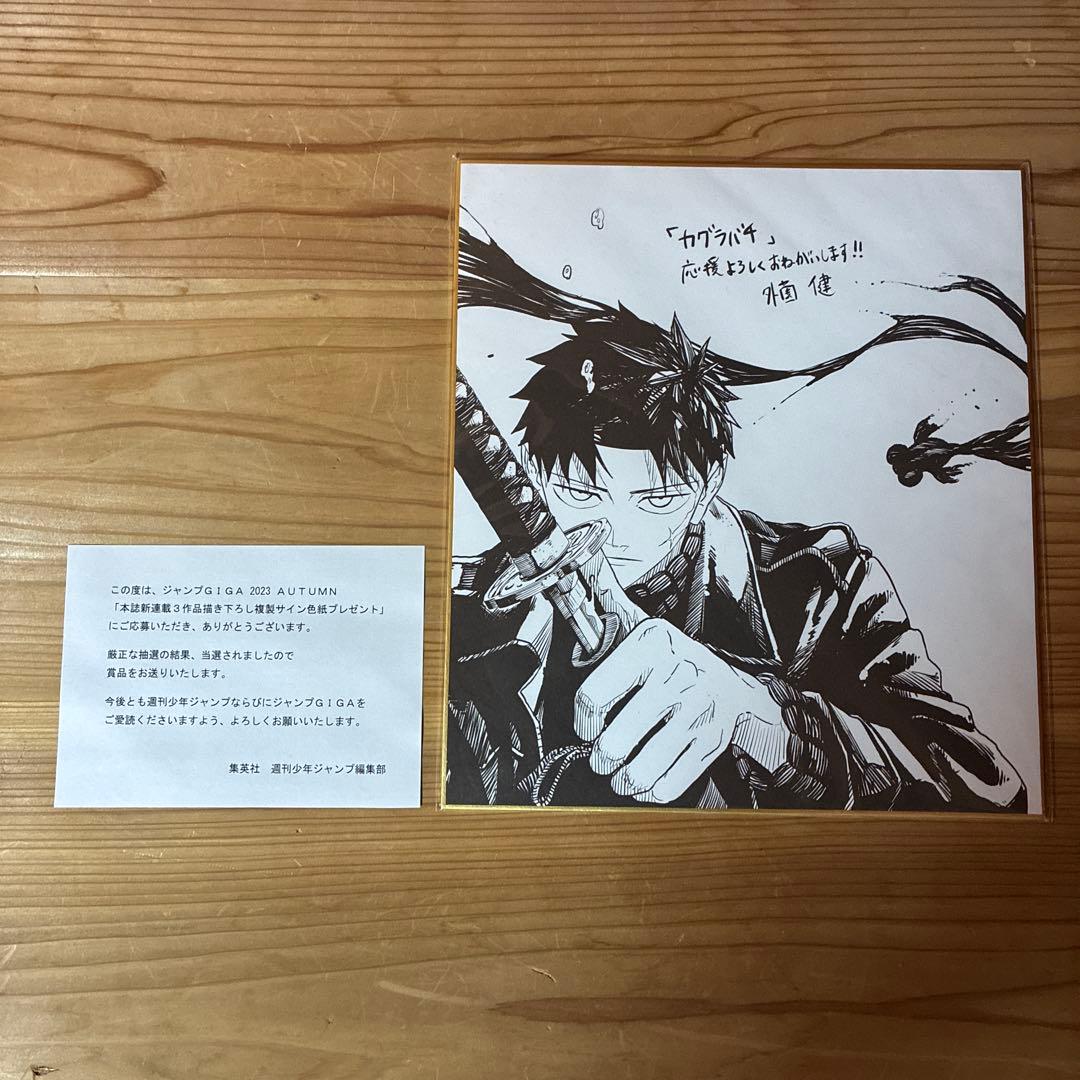 この度は、ジャンプGIGA 2023 AUTUMN
「本誌新連載３作品描き下ろし複製サイン色紙プレゼント」
にご応募いただき、ありがとうございます。
厳正な抽選の結果、当選されましたので
賞品をお送りいたします。
今後とも週刊少年ジャンプならびにジャンプGIGAを
ご愛読くださいますよう、よろしくお願いいたします。
集英社　週刊少年ジャンプ編集部
「カグラバチ」
応援よろしくおねがいします!!
外薗 健